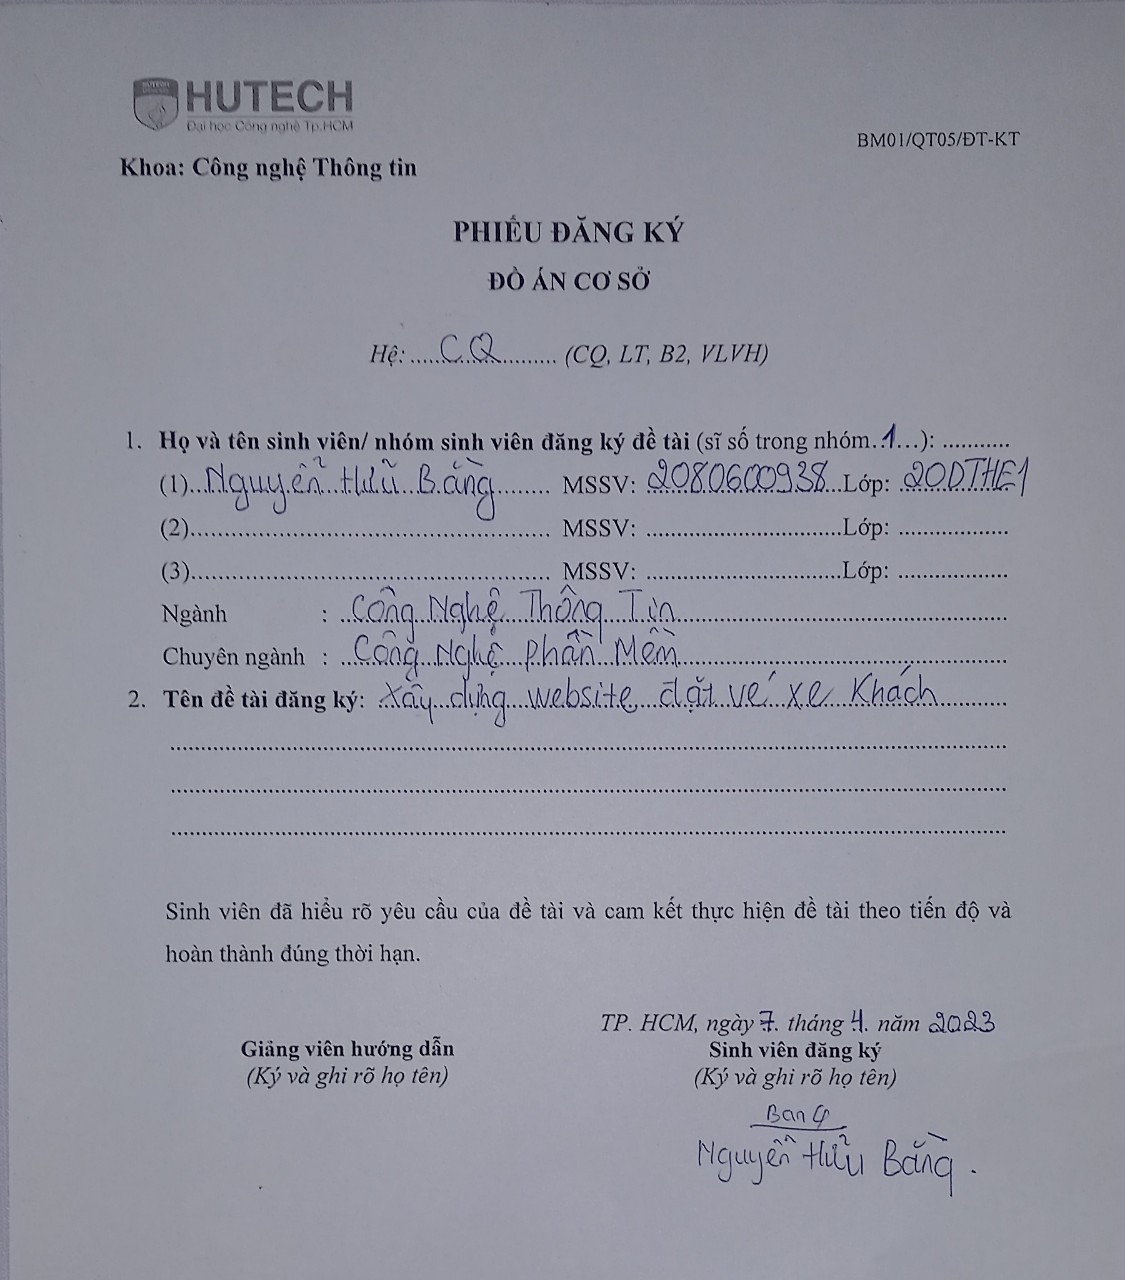 HUTECH
Đại học Công nghệ Tp.HCM
BM01/QT05/ĐT-KT
Khoa: Công nghệ Thông tin
PHIẾU ĐĂNG KÝ
ĐỒ ÁN CƠ SỞ
Hệ: .....CQ.......... (CQ, LT, B2, VLVH)
1. Họ và tên sinh viên/ nhóm sinh viên đăng ký đề tài (sĩ số trong nhóm..1...): ...........
(1)..Nguyễn Hữu Bằng........ MSSV: 2080600938..Lớp: 20DTHE1
(2).......................................................... MSSV: ................................Lớp: ..................
(3).......................................................... MSSV: ................................Lớp: ..................
Ngành : ..Công Nghệ Thông Tin......................................................
Chuyên ngành : ..Công Nghệ Phần Mềm......................................................
2. Tên đề tài đăng ký: Xây dựng website đặt vé xe Khách...........
......................................................................................................................................
......................................................................................................................................
......................................................................................................................................
Sinh viên đã hiểu rõ yêu cầu của đề tài và cam kết thực hiện đề tài theo tiến độ và
hoàn thành đúng thời hạn.
TP. HCM, ngày 7. tháng 4. năm 2023
Giảng viên hướng dẫn Sinh viên đăng ký
(Ký và ghi rõ họ tên) (Ký và ghi rõ họ tên)
Bang
Nguyễn Hữu Bằng.